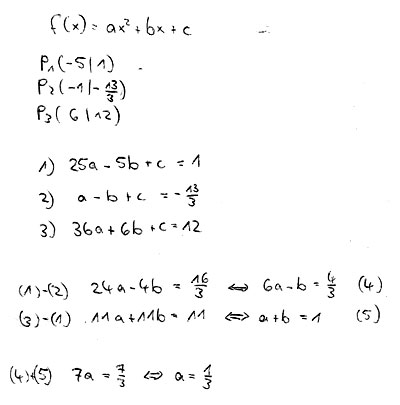 f(x) = ax² + bx + c
P₁(-5|1)
P₂(-1|-13/3)
P₃(6|12)
1) 25a - 5b + c = 1
2) a - b + c = -13/3
3) 36a + 6b + c = 12
(1)-(2) 24a - 4b = 16/3 ⇔ 6a - b = 4/3 (4)
(3)-(1) 11a + 11b = 11 ⇔ a + b = 1 (5)
(4)+(5) 7a = 7/3 ⇔ a = 1/3